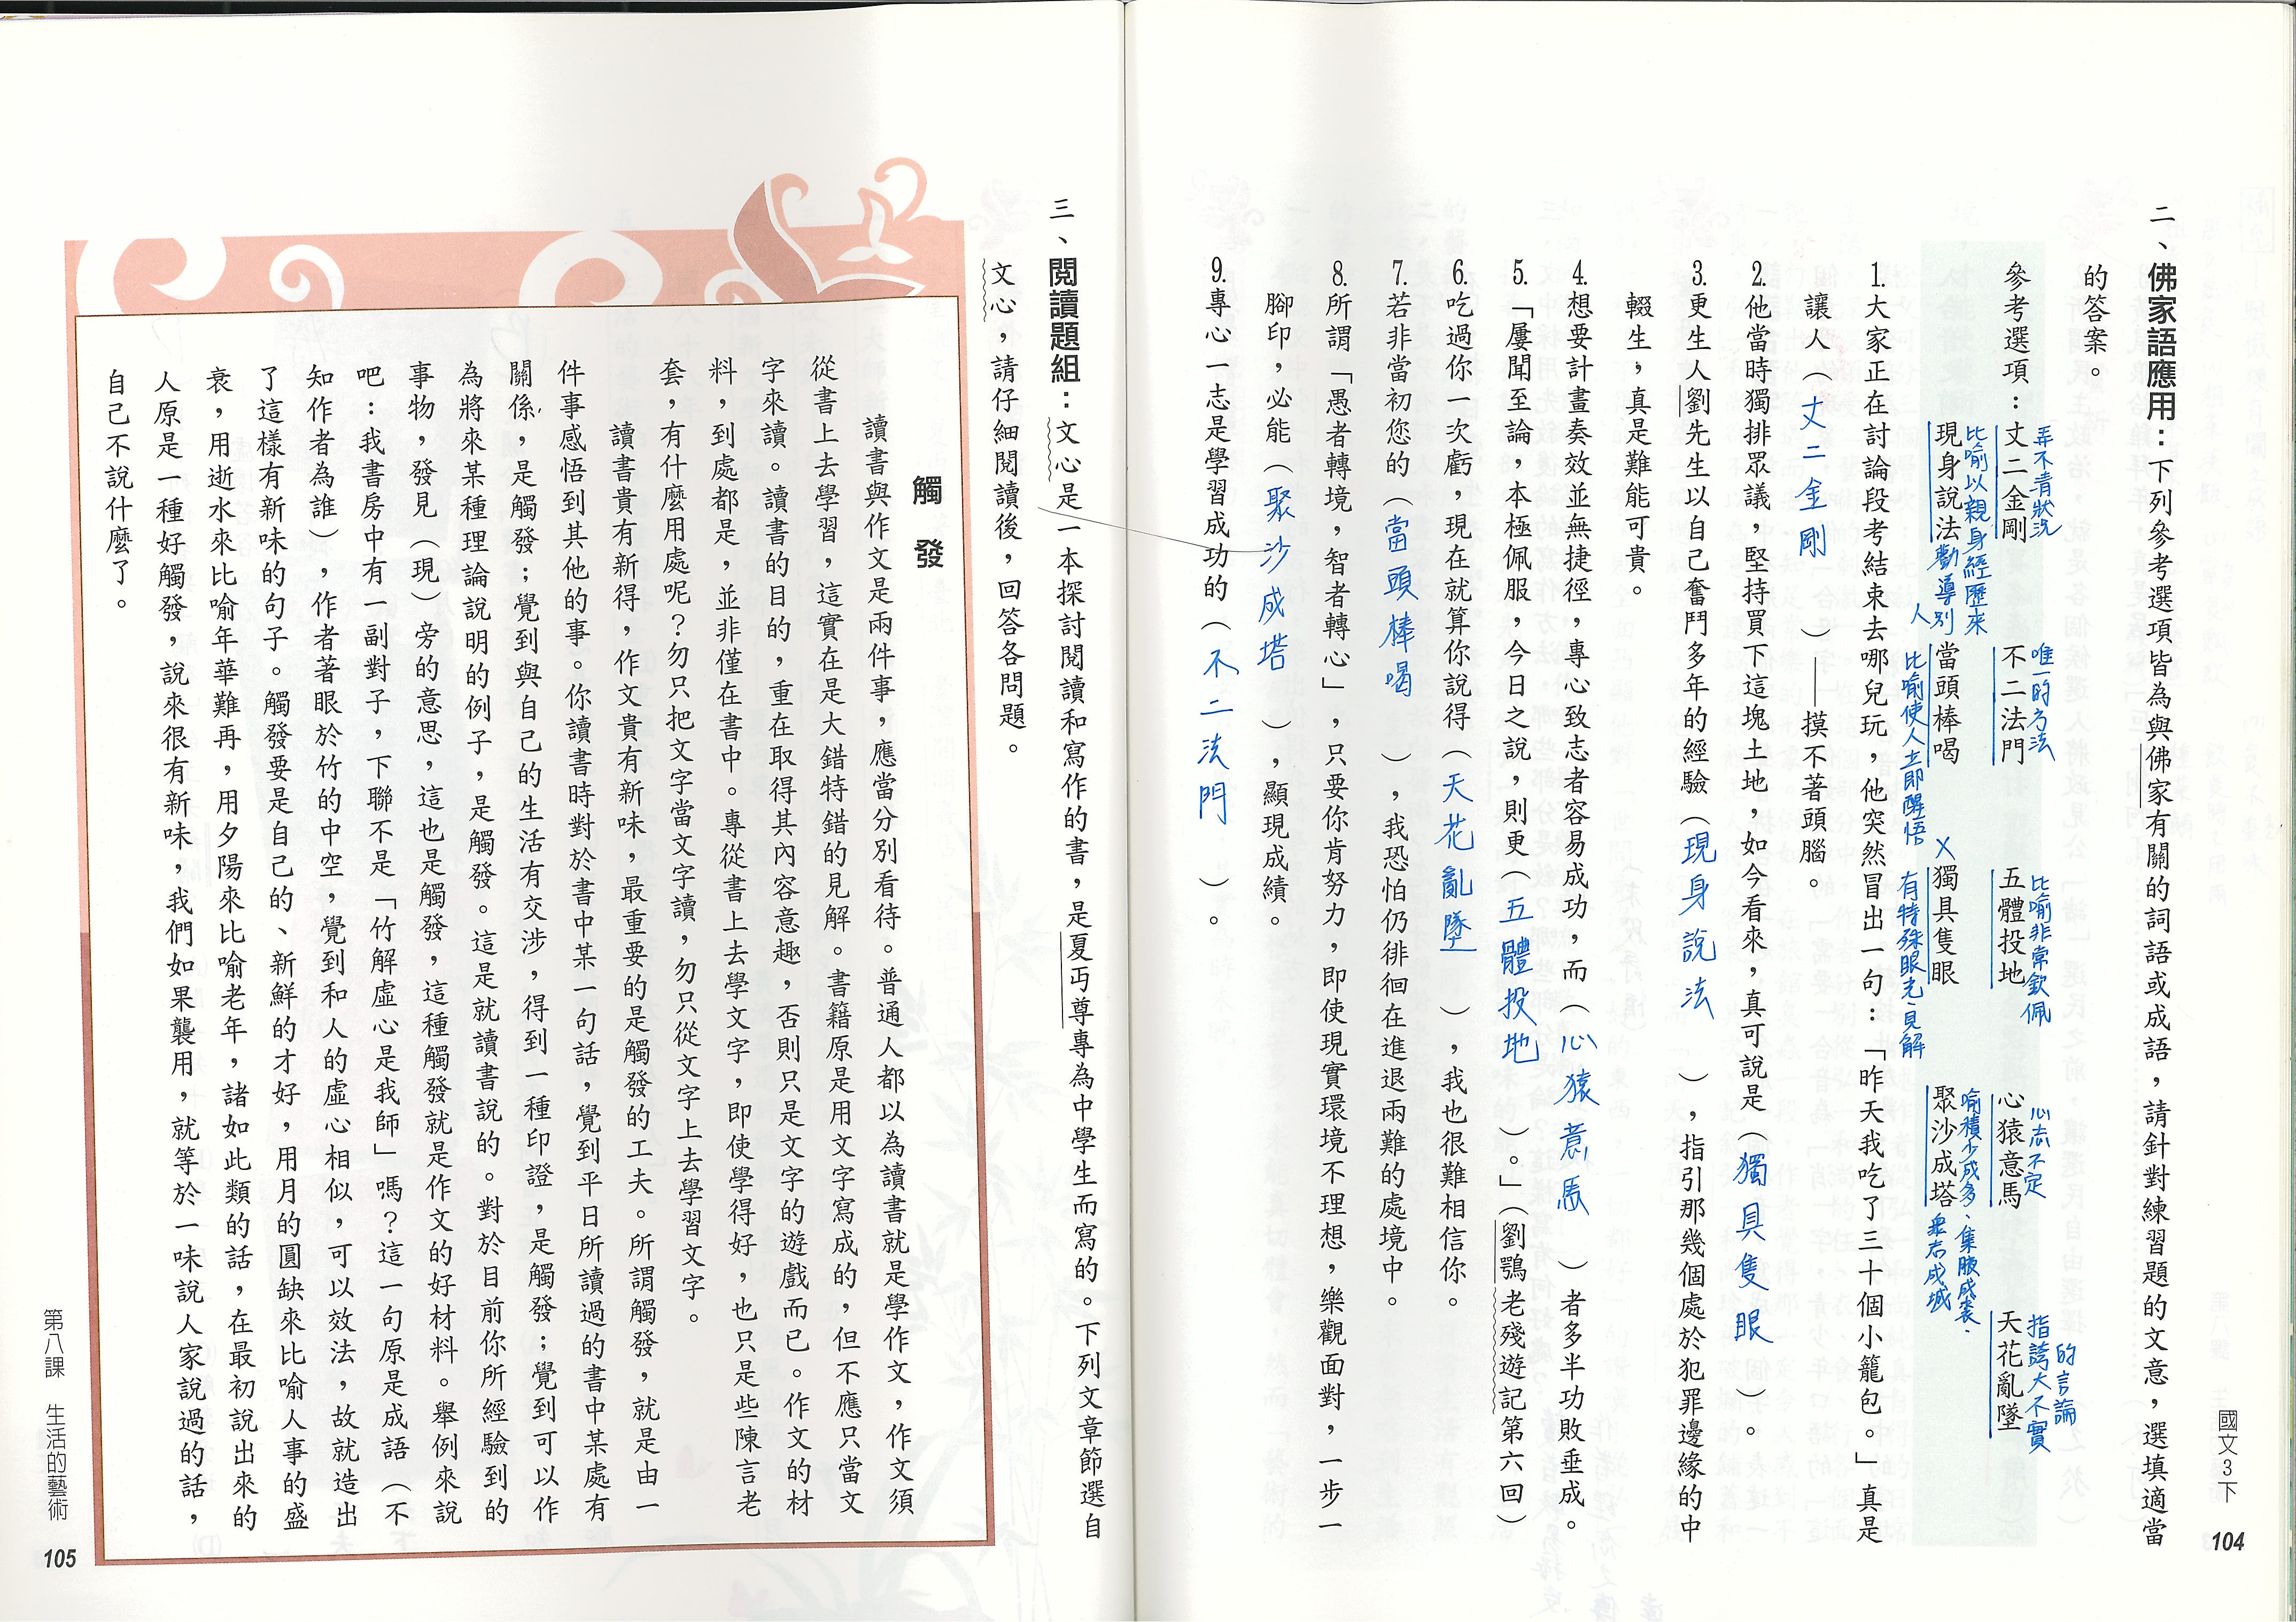 二、佛家語應用：下列參考選項皆為與佛家有關的詞語或成語，請針對練習題的文意，選填適當
的答案。
的言論
弄不清狀況　唯一的方法　比喻非常欽佩　心志不定　指誇大不實
參考選項：丈二金剛　不二法門　五體投地　心猿意馬　天花亂墜
比喻以親身經歷來　喻積少成多、集腋成裘、
現身說法勸導別　當頭棒喝　X獨具隻眼　聚沙成塔　眾志成城
人　比喻使人立即醒悟　有特殊眼光、見解
1.大家正在討論段考結束去哪兒玩，他突然冒出一句：「昨天我吃了三十個小籠包。」真是
讓人（丈二金剛）——摸不著頭腦。
2.他當時獨排眾議，堅持買下這塊土地，如今看來，真可說是（獨具隻眼）。
3.更生人劉先生以自己奮鬥多年的經驗（現身說法），指引那幾個處於犯罪邊緣的中
輟生，真是難能可貴。
4.想要計畫奏效並無捷徑，專心致志者容易成功，而（心猿意馬）者多半功敗垂成。
5.「屢聞至論，本極佩服，今日之說，則更（五體投地）。」（劉鶚老殘遊記第六回）
6.吃過你一次虧，現在就算你說得（天花亂墜），我也很難相信你。
7.若非當初您的（當頭棒喝），我恐怕仍徘徊在進退兩難的處境中。
8.所謂「愚者轉境，智者轉心」，只要你肯努力，即使現實環境不理想，樂觀面對，一步一
腳印，必能（聚沙成塔），顯現成績。
9.專心一志是學習成功的（不二法門）。
國文3下
104
三、閱讀題組：文心是一本探討閱讀和寫作的書，是夏丏尊專為中學生而寫的。下列文章節選自
文心，請仔細閱讀後，回答各問題。
觸發
讀書與作文是兩件事，應當分別看待。普通人都以為讀書就是學作文，作文須
從書上去學習，這實在是大錯特錯的見解。書籍原是用文字寫成的，但不應只當文
字來讀。讀書的目的，重在取得其內容意趣，否則只是文字的遊戲而已。作文的材
料，到處都是，並非僅在書中。專從書上去學文字，即使學得好，也只是些陳言老
套，有什麼用處呢？勿只把文字當文字讀，勿只從文字上去學習文字。
讀書貴有新得，作文貴有新味，最重要的是觸發的工夫。所謂觸發，就是由一
件事感悟到其他的事。你讀書時對於書中某一句話，覺到平日所讀過的書中某處有
關係，是觸發；覺到與自己的生活有交涉，得到一種印證，是觸發；覺到可以作
為將來某種理論說明的例子，是觸發。這是就讀書說的。對於目前你所經驗到的
事物，發見（現）旁的意思，這也是觸發，這種觸發就是作文的好材料。舉例來說
吧：我書房中有一副對子，下聯不是「竹解虛心是我師」嗎？這一句原是成語（不
知作者為誰），作者著眼於竹的中空，覺到和人的虛心相似，可以效法，故就造出
了這樣有新味的句子。觸發要是自己的、新鮮的才好，用月的圓缺來比喻人事的盛
衰，用逝水來比喻年華難再，用夕陽來比喻老年，諸如此類的話，在最初說出來的
人原是一種好觸發，說來很有新味，我們如果襲用，就等於一味說人家說過的話，
自己不說什麼了。
第八課　生活的藝術
105